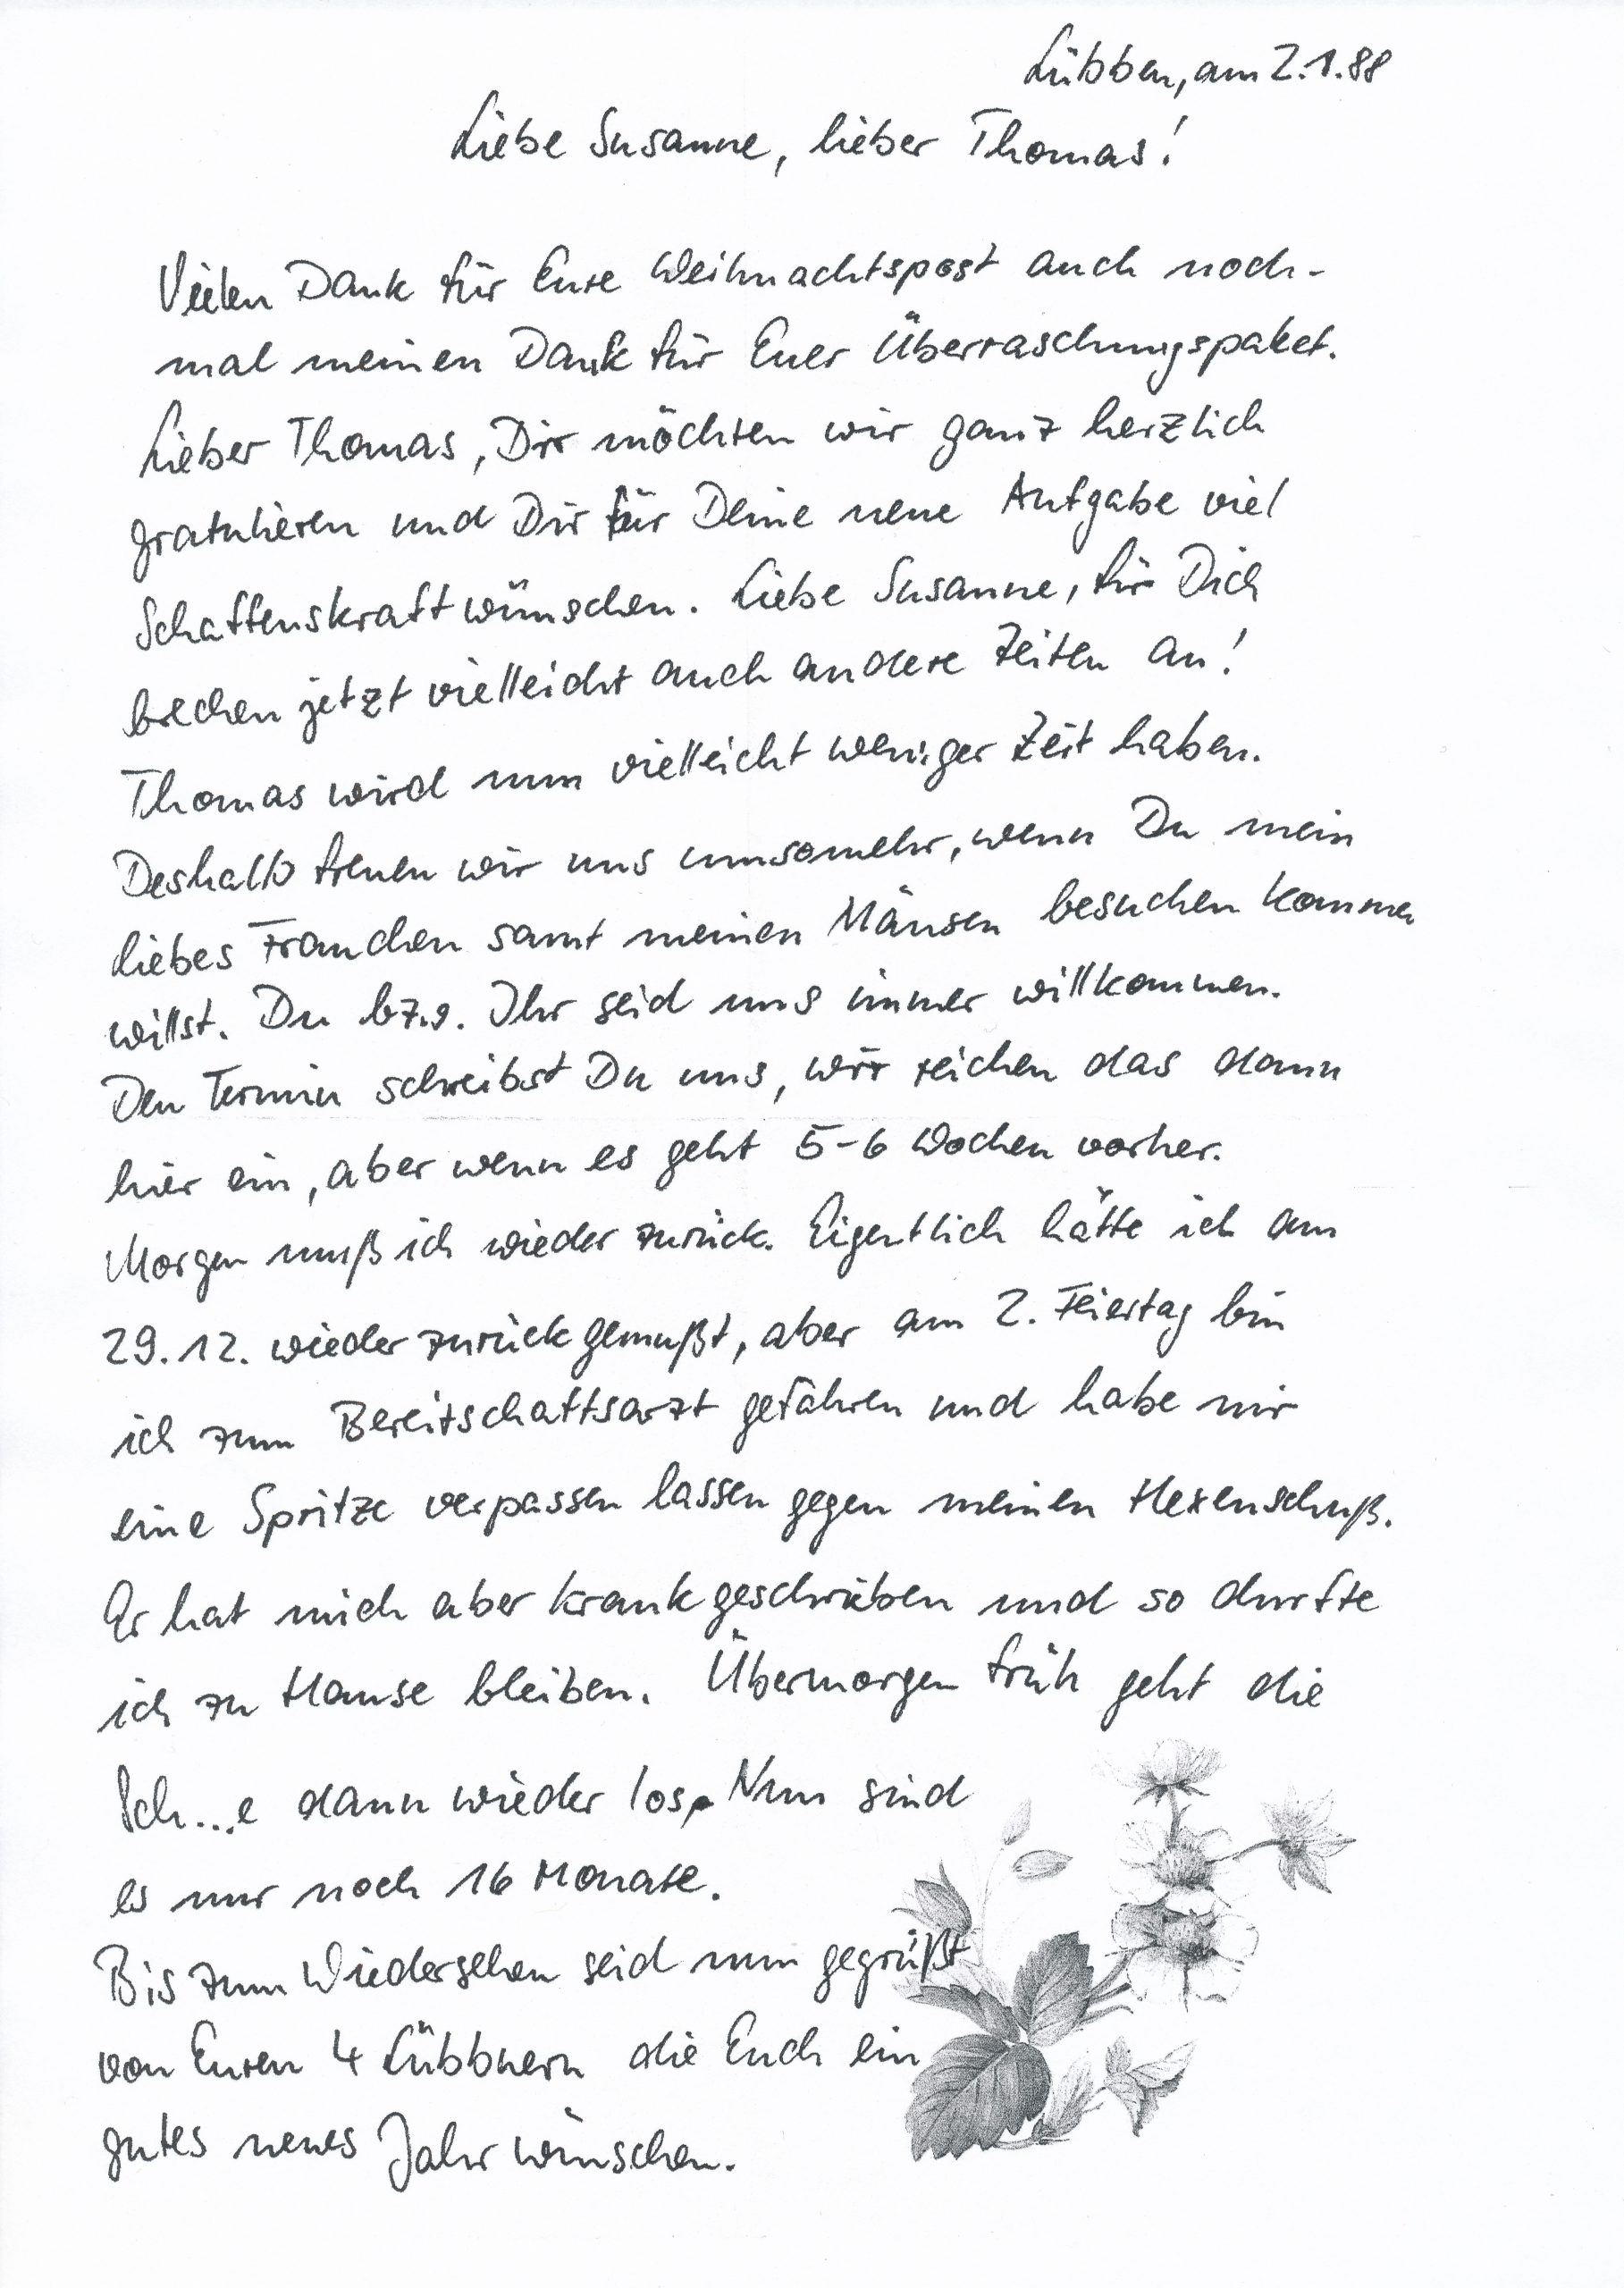 Lübben, am 2.1.88
Liebe Susanne, lieber Thomas!
Vielen Dank für Eure Weihnachtspost auch noch-
mal meinen Dank für Euer Überraschungspaket.
Lieber Thomas, Dir möchten wir ganz herzlich
gratulieren und Dir für Deine neue Aufgabe viel
Schaffenskraft wünschen. Liebe Susanne, für Dich
brechen jetzt vielleicht auch andere Zeiten an!
Thomas wird nun vielleicht weniger Zeit haben.
Deshalb freuen wir uns umsomehr, wenn Du mein
liebes Frauchen samt meinen Mäusen besuchen kommen
willst. Du bzw. Ihr seid uns immer willkommen.
Den Termin schreibst Du uns, wir reichen das dann
hier ein, aber wenn es geht 5-6 Wochen vorher.
Morgen muß ich wieder zurück. Eigentlich hätte ich am
29.12. wieder zurück gemußt, aber am 2. Feiertag bin
ich zum Bereitschaftsarzt gefahren und habe mir
eine Spritze verpassen lassen gegen meinen Hexenschuß.
Er hat mich aber krank geschrieben und so durfte
ich zu Hause bleiben. Übermorgen früh geht die
Sch...e dann wieder los. Nun sind
es nur noch 16 Monate.
Bis zum Wiedersehen seid nun gegrüßt
von Euren 4 Lübbnern die Euch ein
gutes neues Jahr wünschen.